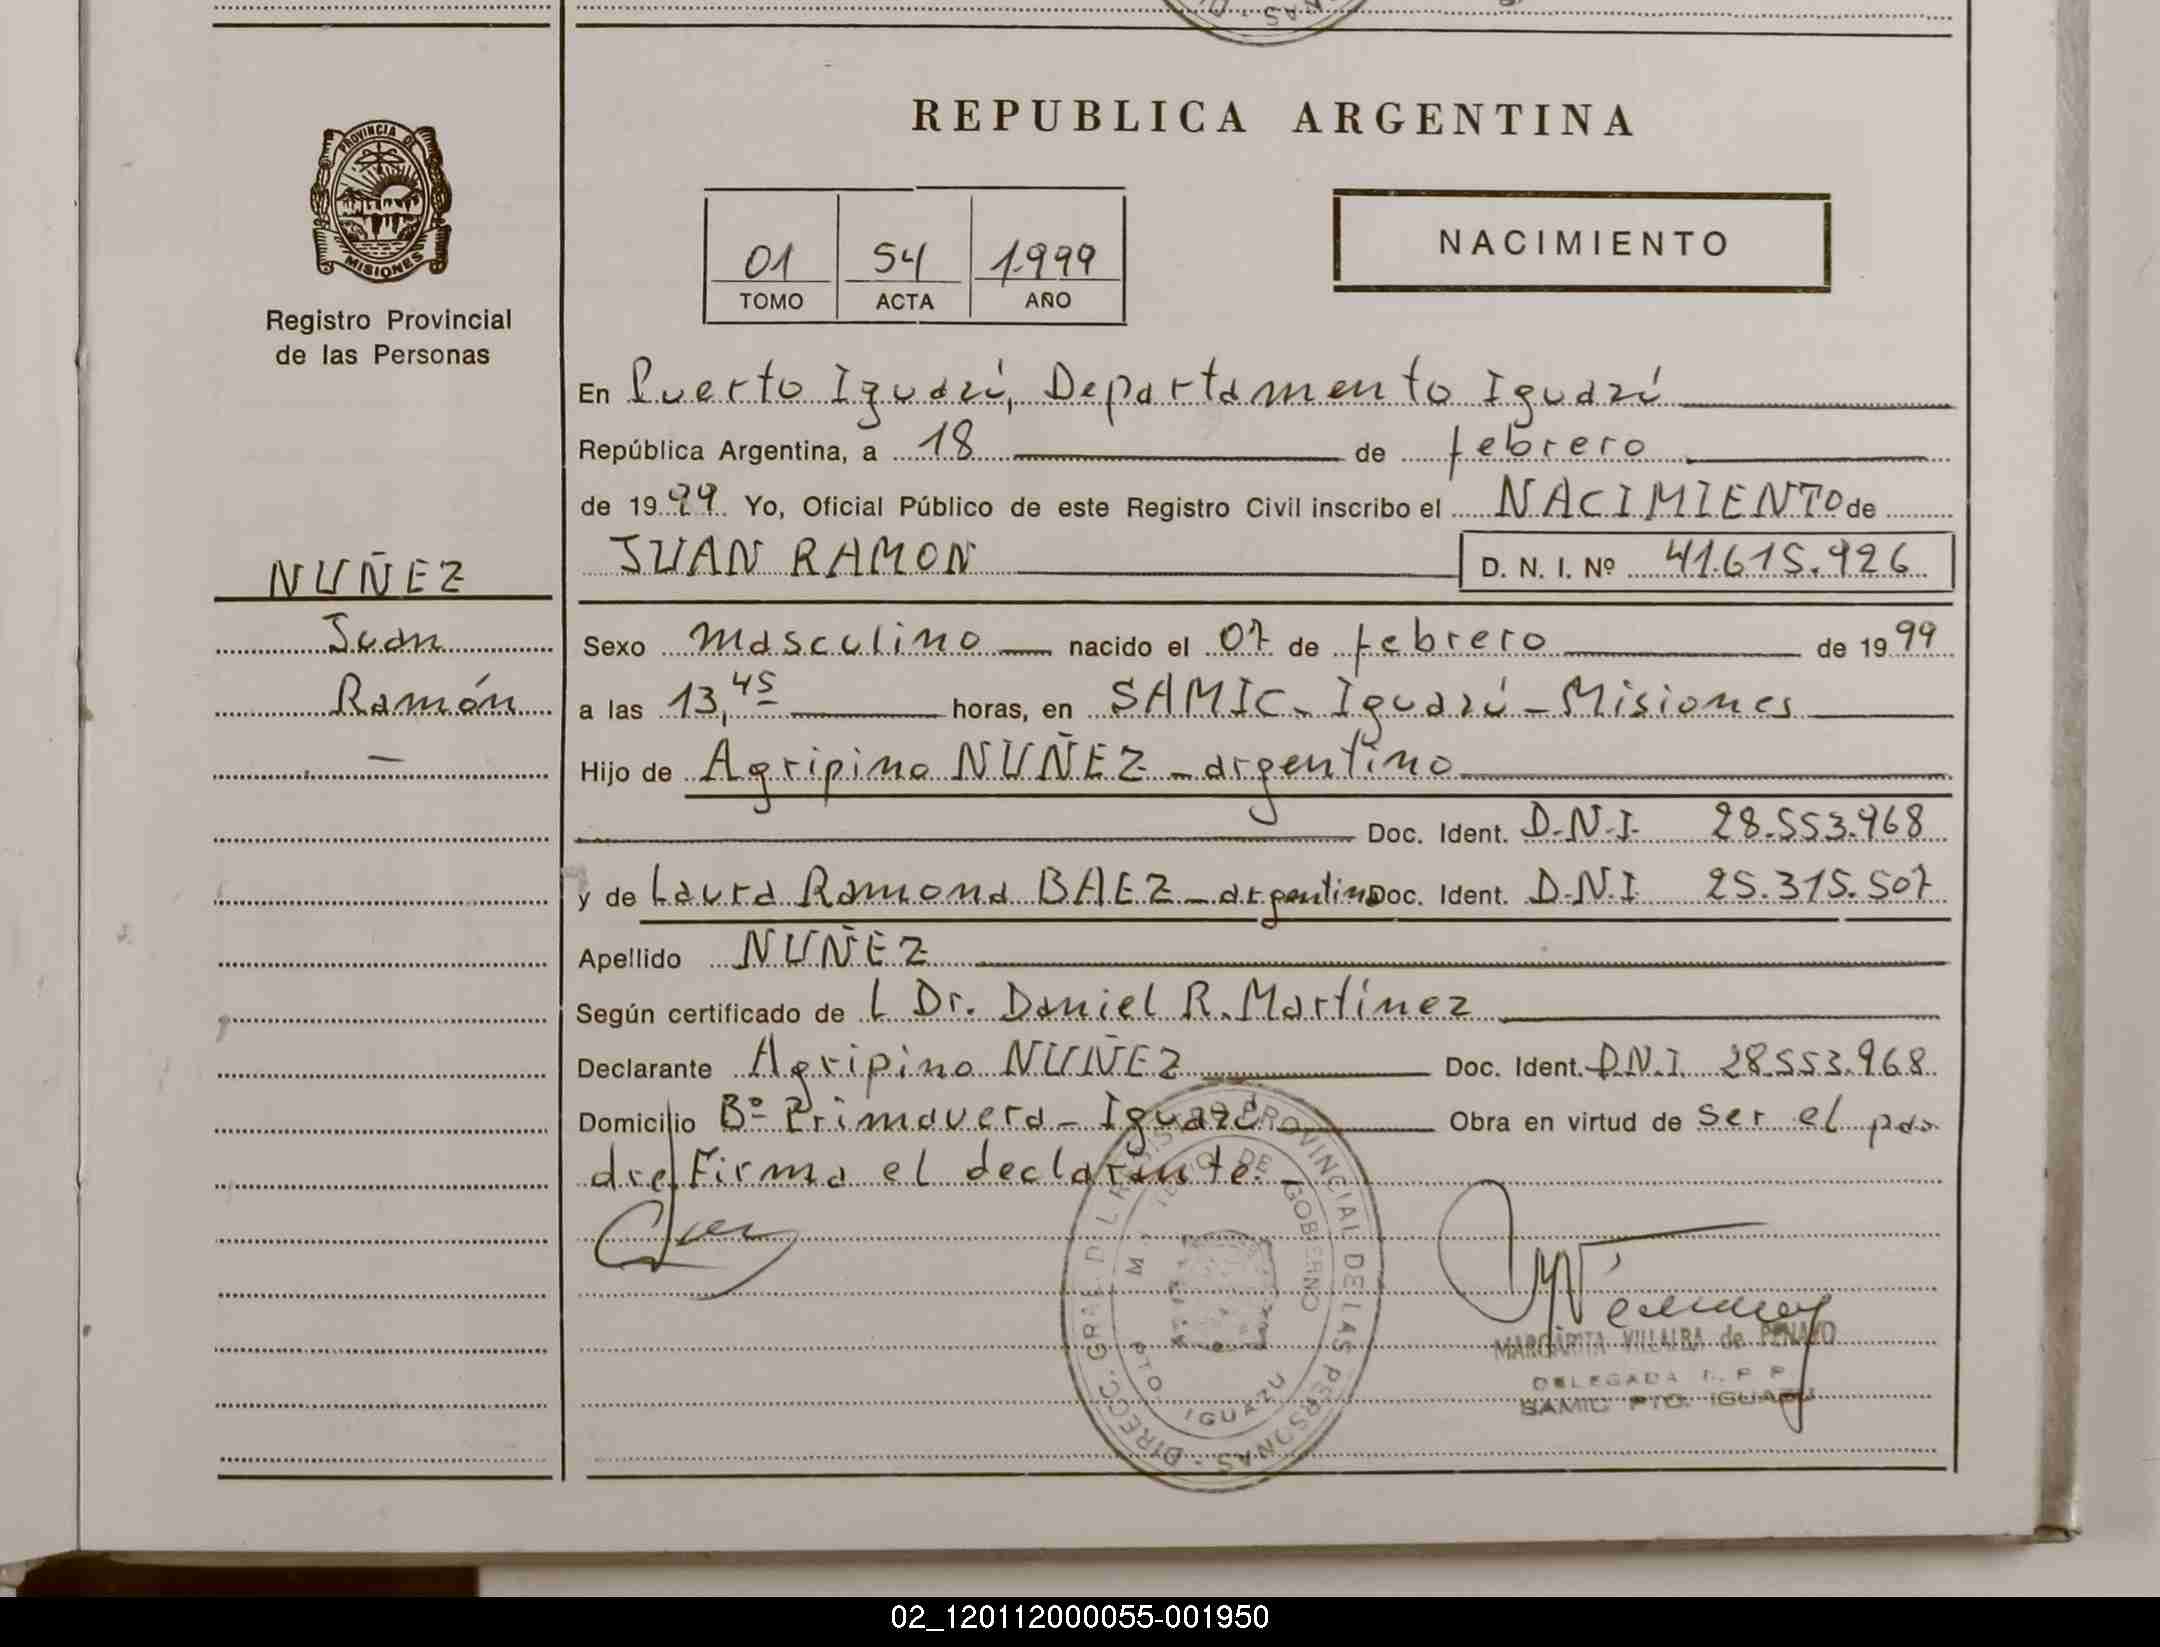 REPUBLICA ARGENTINA
PROVINCIA DE
MISIONES
Registro Provincial
de las Personas
01 54 1.999
TOMO ACTA AÑO
NACIMIENTO
En Puerto Iguazú, Departamento Iguazú
República Argentina, a 18 de febrero
de 1999 Yo, Oficial Público de este Registro Civil inscribo el NACIMIENTO de
JUAN RAMON D. N. I. Nº 41.615.926
NUÑEZ
Juan
Ramón
Sexo masculino nacido el 07 de febrero de 1999
a las 13,45 horas, en SAMIC - Iguazú - Misiones
Hijo de Agripino NUÑEZ - argentino
Doc. Ident. D.N.I. 28.553.968
y de Laura Ramona BAEZ - argentina Doc. Ident. D.N.I 25.315.507
Apellido NUÑEZ
Según certificado de l Dr. Daniel R. Martínez
Declarante Agripino NUÑEZ Doc. Ident. D.N.I. 28.553.968
Domicilio Bº Primavera - Iguazú Obra en virtud de ser el pa-
dre. Firma el declarante.-
DIRECC. GRAL. DEL REGISTRO PROVINCIAL DE LAS PERSONAS
DE GOBIERNO
PTO. IGUAZU
MARGARITA VILLALBA de PENAYO
DELEGADA R. P. P.
SAMIC PTO. IGUAZU
02_120112000055-001950